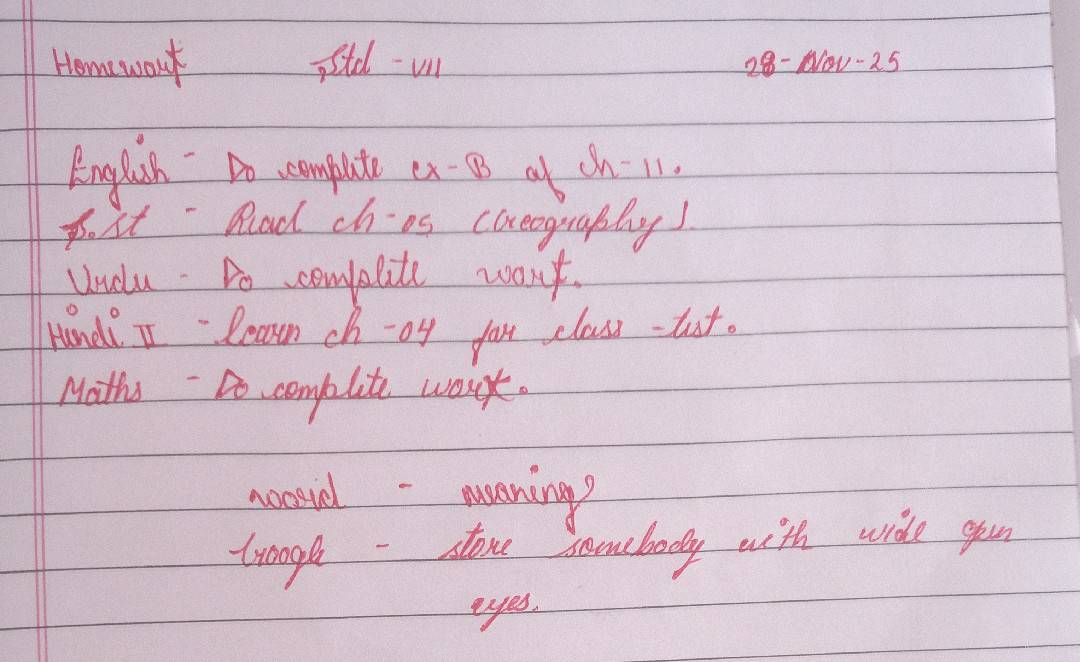 Homework Std - VII 28-Nov-25
English - Do complete ex-B of ch-11.
S.St - Read ch-05 (Geography).
Urdu - Do complete work.
Hindi II - learn ch-04 for class-test.
Maths - Do complete work.
word - meaning
Google - stare somebody with wide open
eyes.